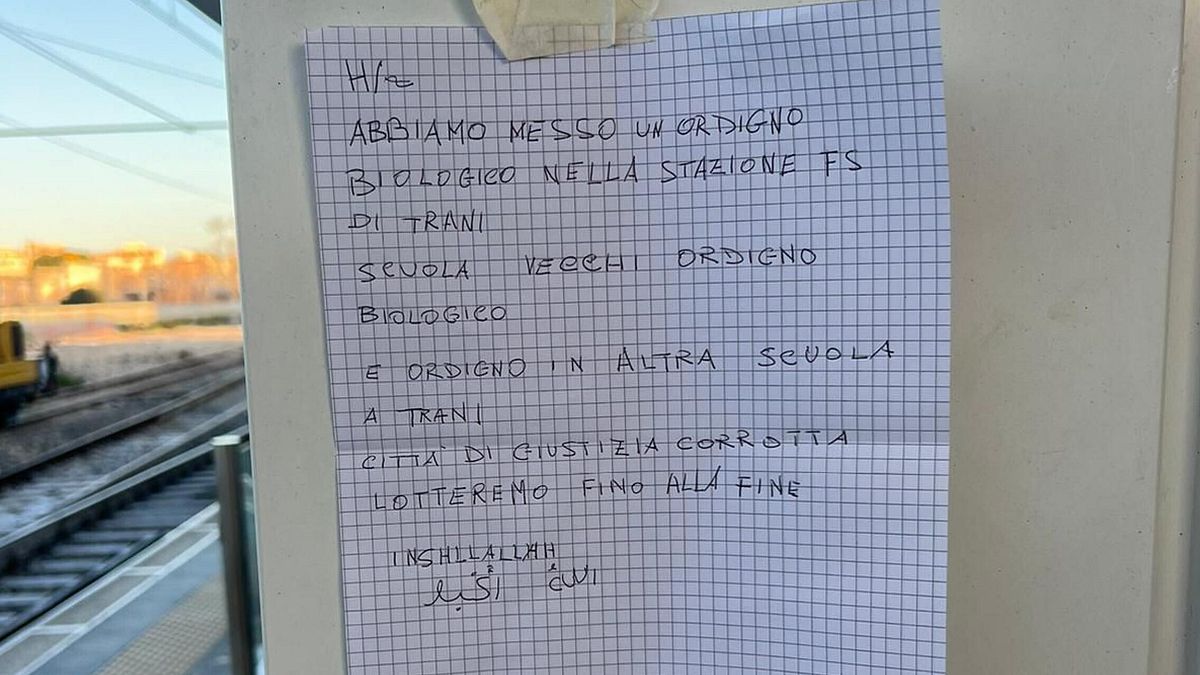 H/2
ABBIAMO MESSO UN ORDIGNO
BIOLOGICO NELLA STAZIONE FS
DI TRANI
SCUOLA VECCHI ORDIGNO
BIOLOGICO
E ORDIGNO IN ALTRA SCUOLA
A TRANI
CITTÀ DI GIUSTIZIA CORROTTA
LOTTEREMO FINO ALLA FINE
INSHLLALLAH